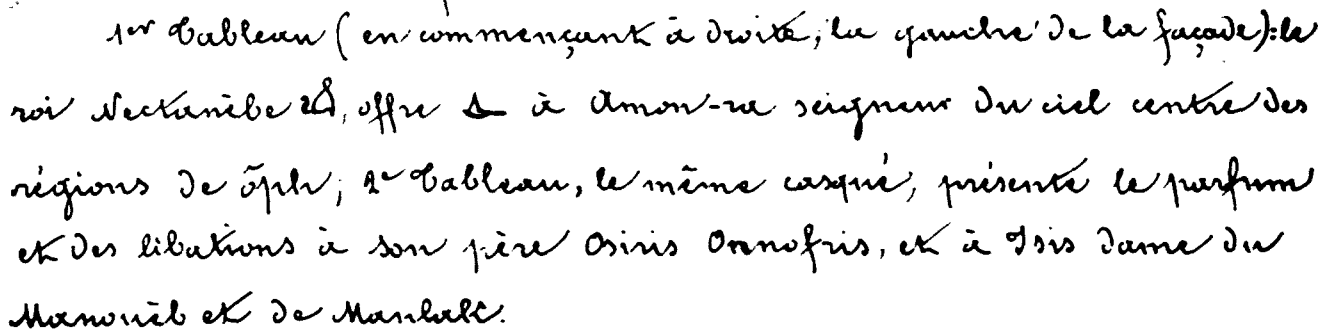 1er Tableau (en commençant à droite, la gauche de la façade): le
roi Nectanèbe 2d, offre à Amon-ra seigneur du ciel centre des
régions de ôph; 2e Tableau, le même casqué, présente le parfum
et des libations à son père Osiris Onnofris, et à Isis dame du
Manouèb et de Manlak.